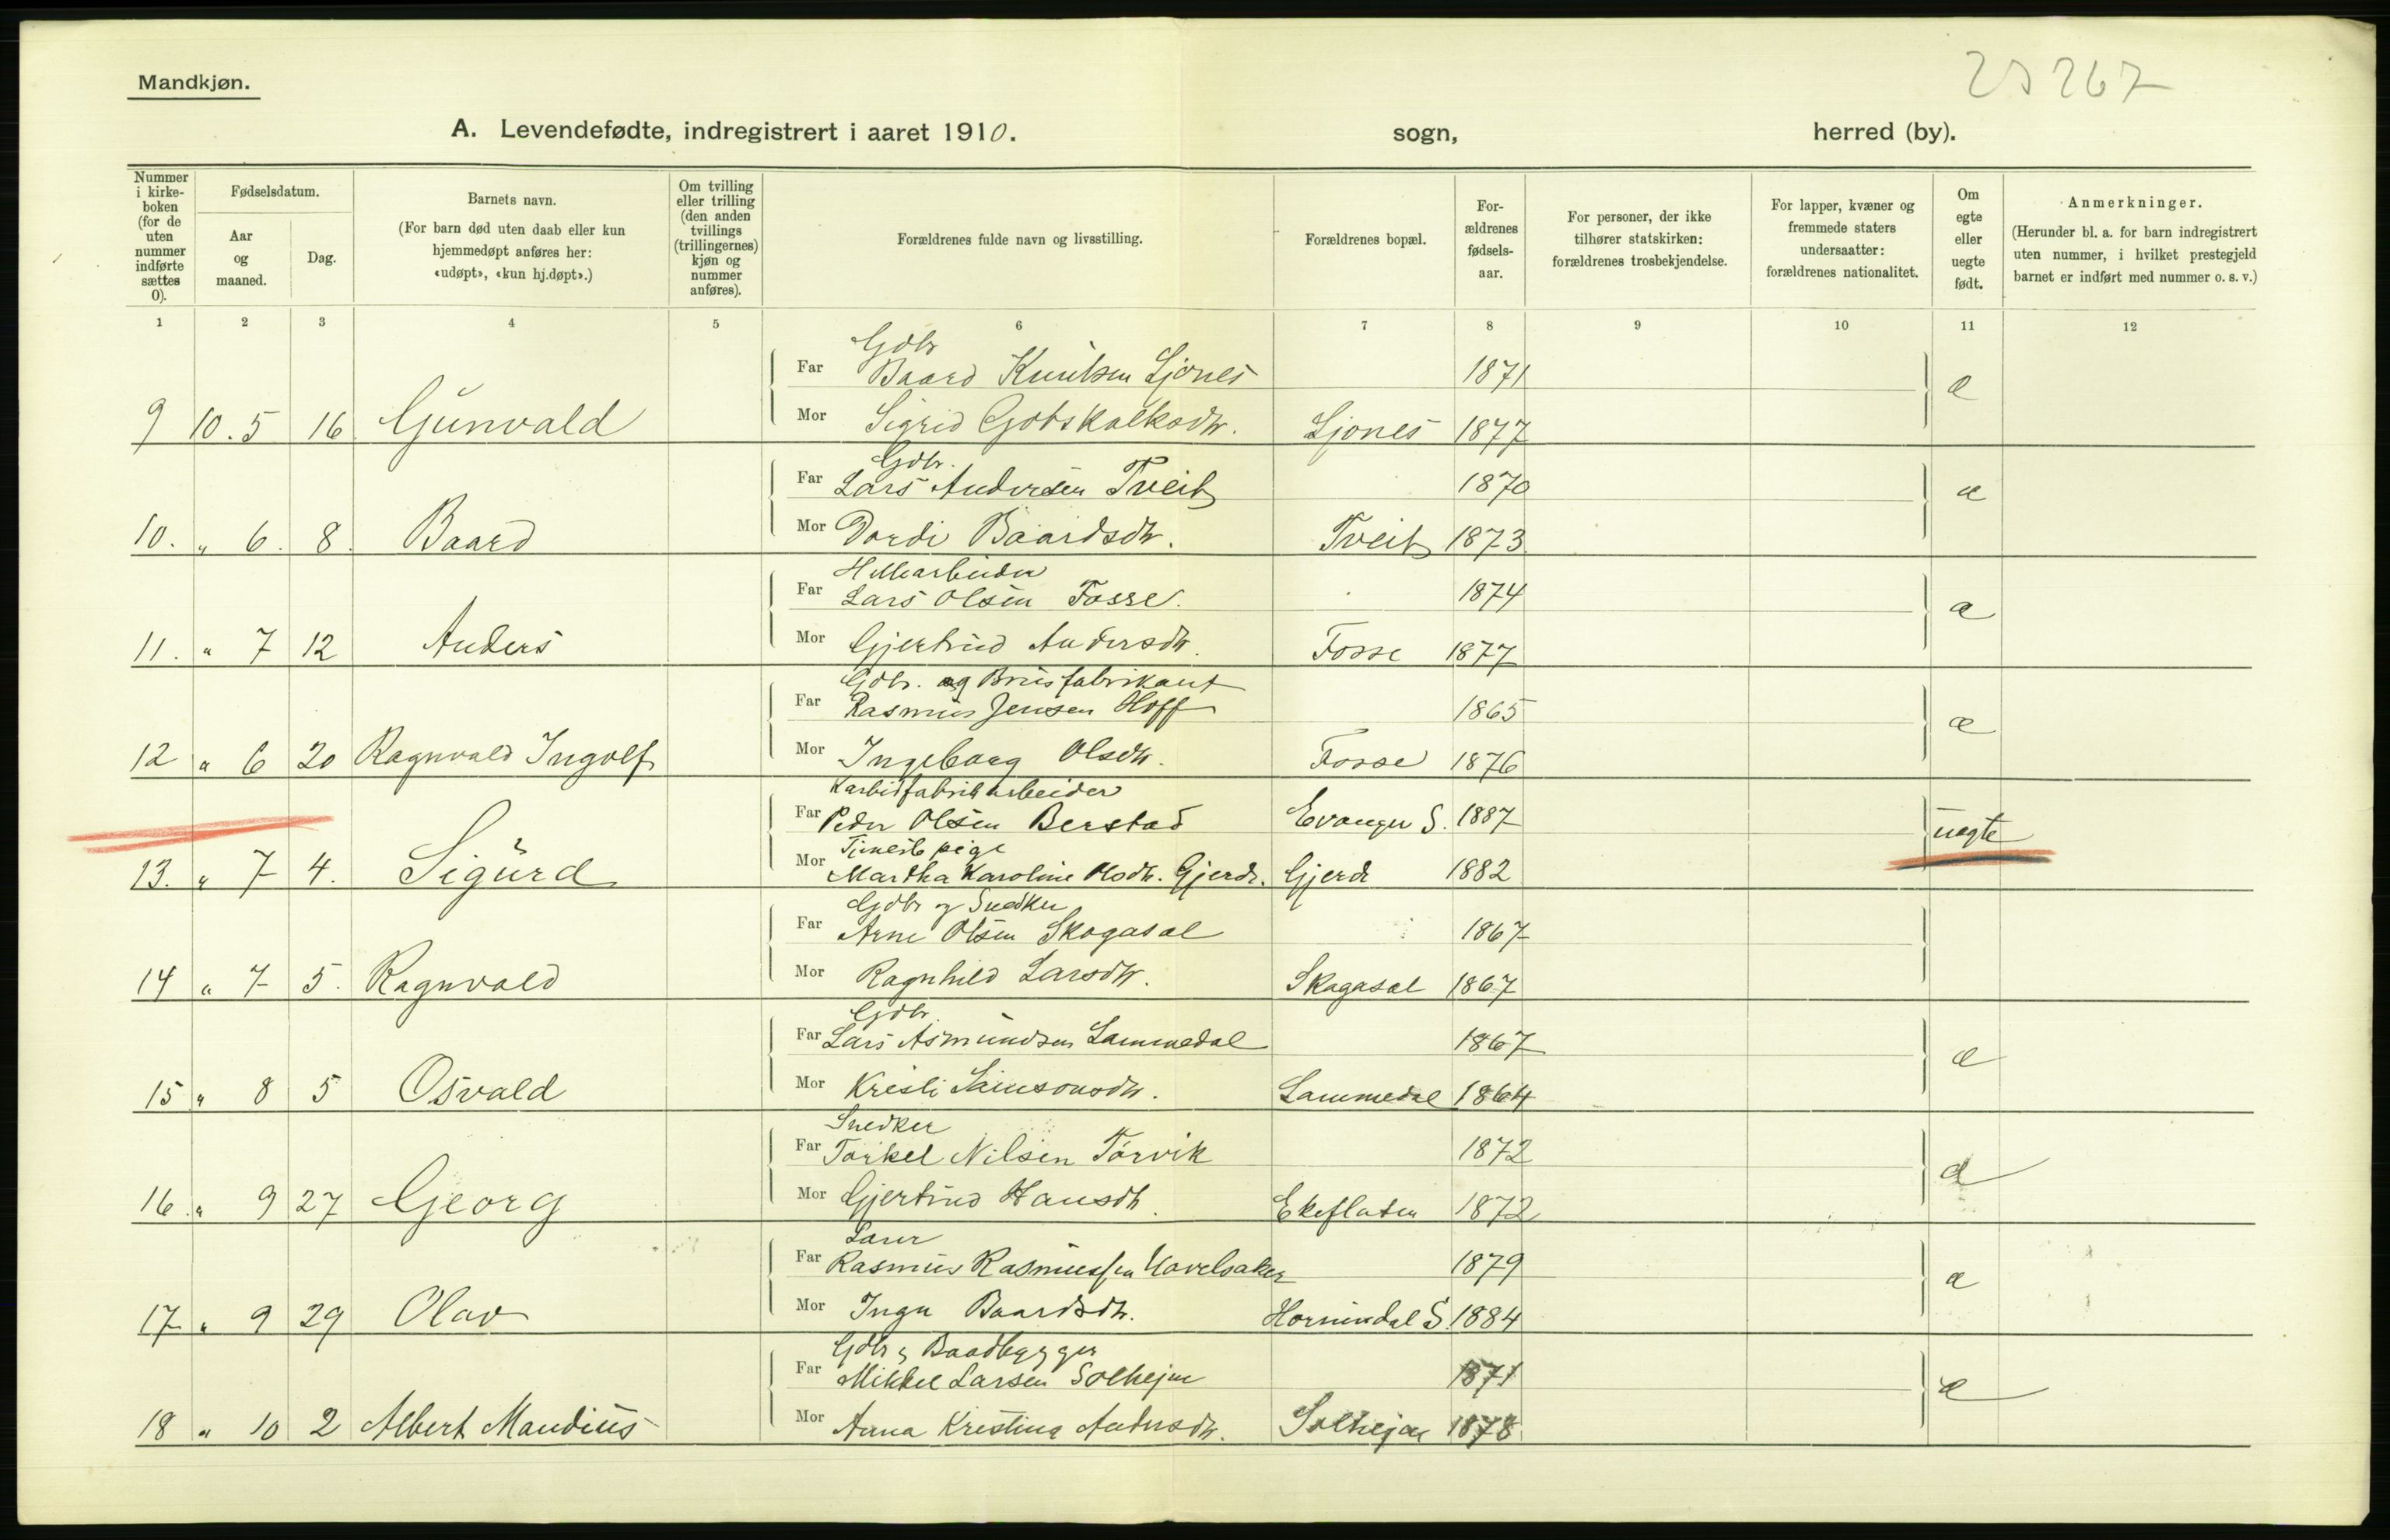 Mandkjøn.
25267
A. Levendefødte, indregistrert i aaret 1910. sogn, herred (by).
Nummer i kirke-boken (for de uten nummer indførte sættes 0).
Fødselsdatum.
Aar og maaned.
Dag.
Barnets navn.
(For barn død uten daab eller kun hjemmedøpt anføres her: «udøpt», «kun hj.døpt».)
Om tvilling eller trilling (den anden tvillings (trillingernes) kjøn og nummer anføres).
Forældrenes fulde navn og livsstilling.
Forældrenes bopæl.
For-ældrenes fødsels-aar.
For personer, der ikke tilhører statskirken: forældrenes trosbekjendelse.
For lapper, kvæner og fremmede staters undersaatter: forældrenes nationalitet.
Om egte eller uegte født.
Anmerkninger.
(Herunder bl. a. for barn indregistrert uten nummer, i hvilket prestegjeld barnet er indført med nummer o. s. v.)
1 2 3 4 5 6 7 8 9 10 11 12
Gdbr
Far Baard Knutsen Ljones 1871 e
9 10.5 16 Gunvald Mor Sigrid Gotskalksdtr. Ljones 1877
Gdbr.
Far Lars Andersen Tveit 1870 e
10. " 6. 8. Baard Mor Dordi Baardsdtr. Tveit 1873.
Hellearbeider
Far Lars Olsen Fosse. 1874 e
11. " 7 12 Anders Mor Gjertrud Andersdtr. Fosse 1877
Gdbr. og Brusfabrikant
Far Rasmus Jensen Hoff 1865 e
12 " 6 20 Ragnvald Ingolf Mor Ingeborg Olsdtr. Fosse 1876
Karbidfabrikarbeider
Far Peder Olsen Berstad Evanger S. 1887 uegte
Tjenestepige
13. " 7 4. Sigurd Mor Martha Karoline Olsdtr. Gjerde. Gjerde 1882
Gdbr og Snedker
Far Arne Olsen Skogasæl 1867
14 " 7 5. Ragnvald Mor Ragnhild Larsdtr. Skogasæl 1867
Gdbr.
Far Lars Asmundsen Sammedal 1867 e
15 " 8 5 Osvald Mor Kristi Samsonsdtr. Sammedal 1864
Snedker
Far Torkel Nilsen Tørvik 1872 e
16. " 9 27 Georg Mor Gjertrud Hansdtr. Ekeflaten 1872
Lærer
Far Rasmus Rasmussen Havelsaker 1879 e
17 " 9 29 Olav Mor Inga Baardsdtr. Hornindal S. 1884
Gdbr og Baadbygger
Far Mikkel Larsen Solhejm 1871 e
18 " 10 2 Albert Mandius Mor Anna Kristina Andersdtr. Solhejm 1878